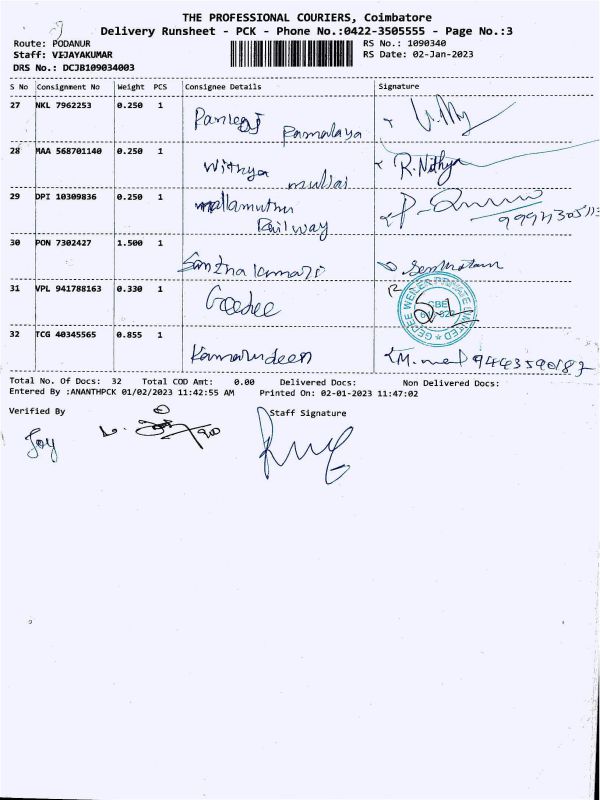 THE PROFESSIONAL COURIERS, Coimbatore
Delivery Runsheet - PCK - Phone No.:0422-3505555 - Page No.:3
Route: PODANUR
RS No.: 1090340
Staff: VIJAYAKUMAR
RS Date: 02-Jan-2023
DRS No.: DCJB109034003
S No Consignment No Weight PCS Consignee Details Signature
27 NKL 7962253 0.250 1
Ramalaya
28 MAA 568701140 0.250 1 Withya mullai R.Nithya
29 DPI 10309836 0.250 1 mallamuthu
Railway
30 PON 7302427 1.500 1 Santhakumari
31 VPL 941788163 0.330 1 Geedee
32 TCG 40345565 0.855 1 Kamarudeen 9443590187
Total No. Of Docs: 32 Total COD Amt: 0.00 Delivered Docs: Non Delivered Docs:
Entered By :ANANTHPCK 01/02/2023 11:42:55 AM Printed On: 02-01-2023 11:47:02
Verified By Staff Signature
Joy